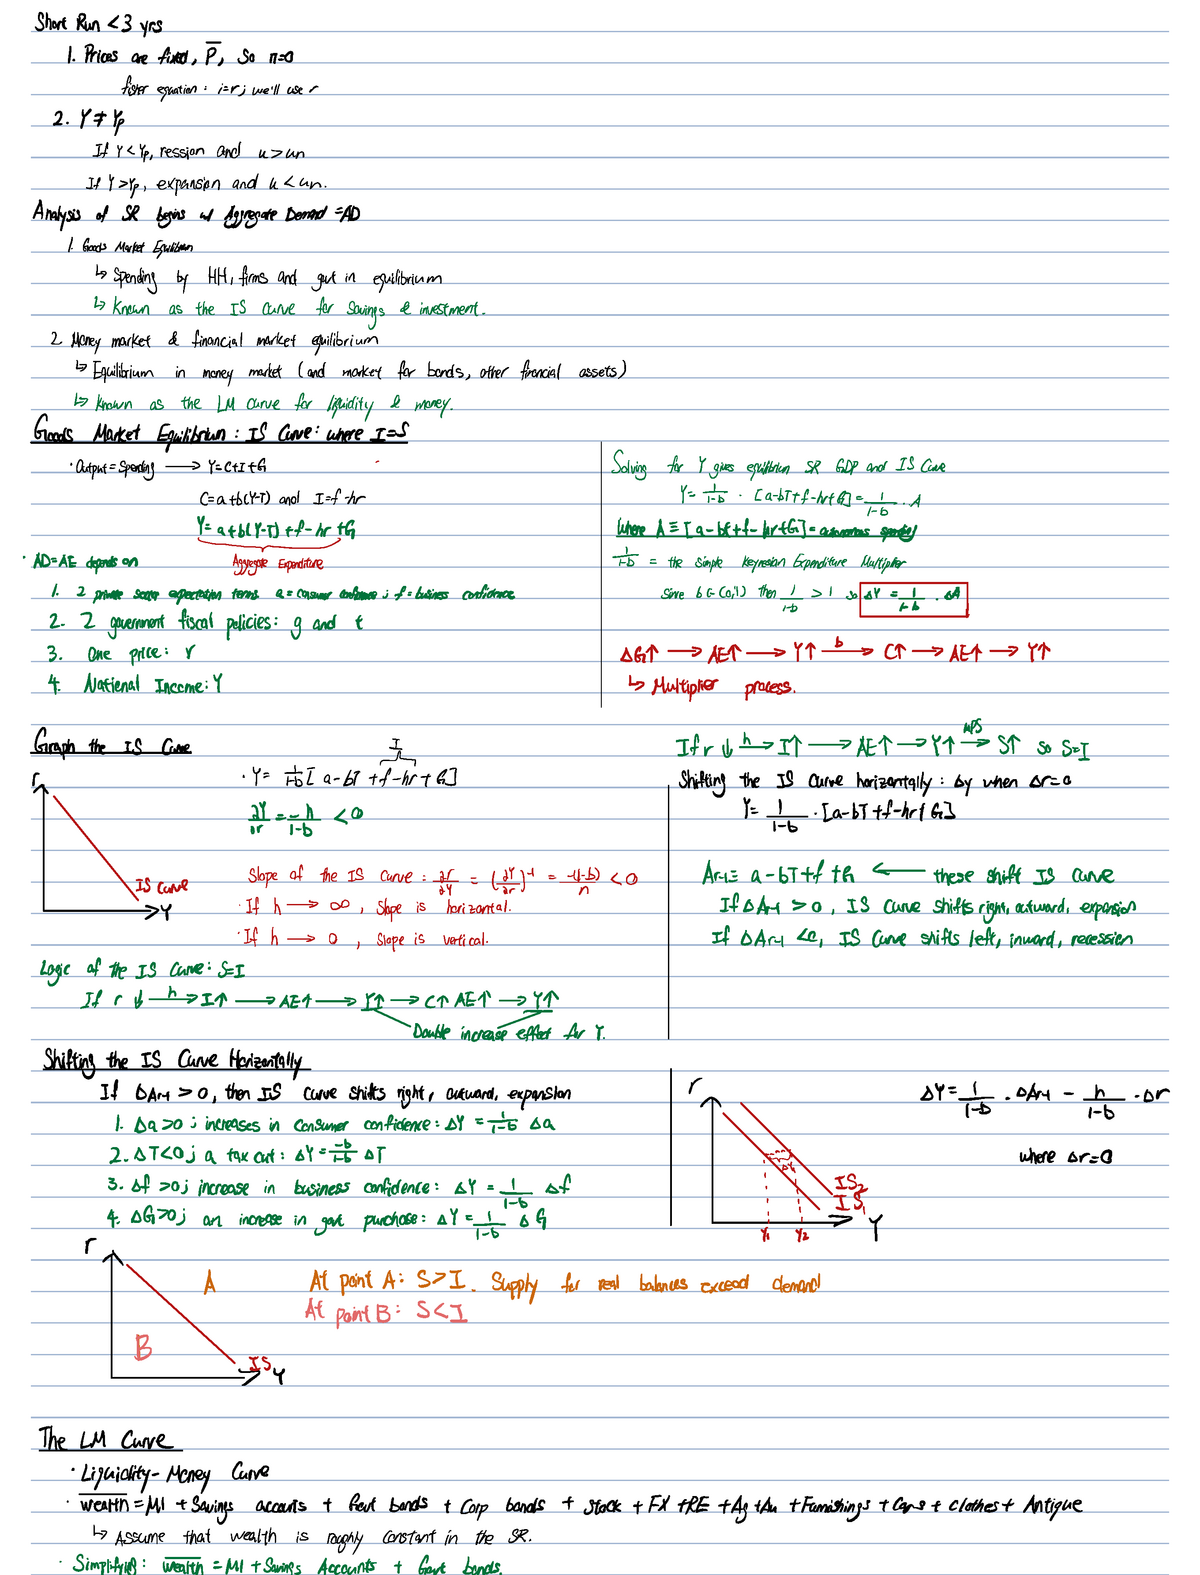 Short Run <3 yrs
1. Prices are fixed, P̅, So π=0
fisher equation: i=r; we'll use r
2. Y≠Yp
If Y<Yp, ression and u>un
If Y>Yp, expansion and u<un.
Analysis of SR begins w/ Aggregate Demand =AD
1. Goods Market Equilibrium
↳ Spending by HH, firms and gvt in equilibrium
↳ Known as the IS Curve for Savings & investment.
2. Money market & financial market equilibrium
↳ Equilibrium in money market (and market for bonds, other financial assets)
↳ Known as the LM Curve for liquidity & money.
Goods Market Equilibrium: IS Curve: where I=S
· Output=Spending ⟶ Y=C+I+G
C=a+b(Y-T) and I=f-hr
Y=a+b(Y-T)+f-hr+G
Aggregate Expenditure
· AD=AE depends on
1. 2 private sector expectation terms a=consumer confidence; f=business confidence
2. 2 government fiscal policies: g and t
3. One price: r
4. National Income: Y
Solving for Y gives equilibrium SR GDP and IS Curve
Y= 1/(1-b) · [a-bT+f-hr+G]= 1/(1-b) · A
Where A≡[a-bt+f-hr+G]=autonomous spending
1/(1-b) = the simple Keynesian Expenditure Multiplier
Since b∈(0,1) then 1/(1-b) >1 so ΔY = 1/(1-b) · ΔA
ΔG↑ ⟶ AE↑ ⟶ Y↑ ⟶b C↑ ⟶ AE↑ ⟶ Y↑
↳ Multiplier process.
Graph the IS Curve
r
IS Curve
Y
I
· Y= 1/(1-b) [a-bT+f-hr+G]
∂Y/∂r = -h/(1-b) <0
Slope of the IS Curve: ∂r/∂Y = (∂Y/∂r)⁻¹ = -(1-b)/h <0
· If h ⟶ ∞, Slope is horizontal.
· If h ⟶ 0, Slope is vertical.
Logic of the IS Curve: S=I
If r ↓ ⟶h I↑ ⟶ AE↑ ⟶ Y↑ ⟶ C↑ AE↑ ⟶ Y↑
Double increase effect for Y.
If r ↓ ⟶h I↑ ⟶ AE↑ ⟶ Y↑ ⟶MPS S↑ so S=I
Shifting the IS Curve horizontally: Δy when Δr=0
Y= 1/(1-b) · [a-bT+f-hr+G]
Ar-1≡ a-bT+f+G ⟵ these shift IS Curve
If ΔAr-1 >0, IS Curve shifts right, outward, expansion
If ΔAr-1 <0, IS Curve shifts left, inward, recession
Shifting the IS Curve Horizontally
If ΔAr-1 >0, then IS Curve shifts right, outward, expansion
1. Δa>0; increases in Consumer confidence: ΔY = 1/(1-b) Δa
2. ΔT<0; a tax cut: ΔY = -b/(1-b) ΔT
3. Δf >0; increase in business confidence: ΔY = 1/(1-b) Δf
4. ΔG>0; an increase in govt purchase: ΔY = 1/(1-b) ΔG
r
IS₂
IS₁
Y₁ Y₂
Y
ΔY= 1/(1-b) · ΔAr-1 - h/(1-b) · Δr
where Δr=0
r
A
B
IS
Y
At point A: S>I. Supply for real balances exceed demand
At point B: S<I
The LM Curve
· Liquidity-Money Curve
· wealth =M1 + Savings accounts + Govt bonds + Corp bonds + Stock + FX +RE +Ag +Au + Furnishings + Cars + clothes + Antique
↳ Assume that wealth is roughly constant in the SR.
· Simplifying: wealth =M1 + Savings Accounts + Govt bonds.